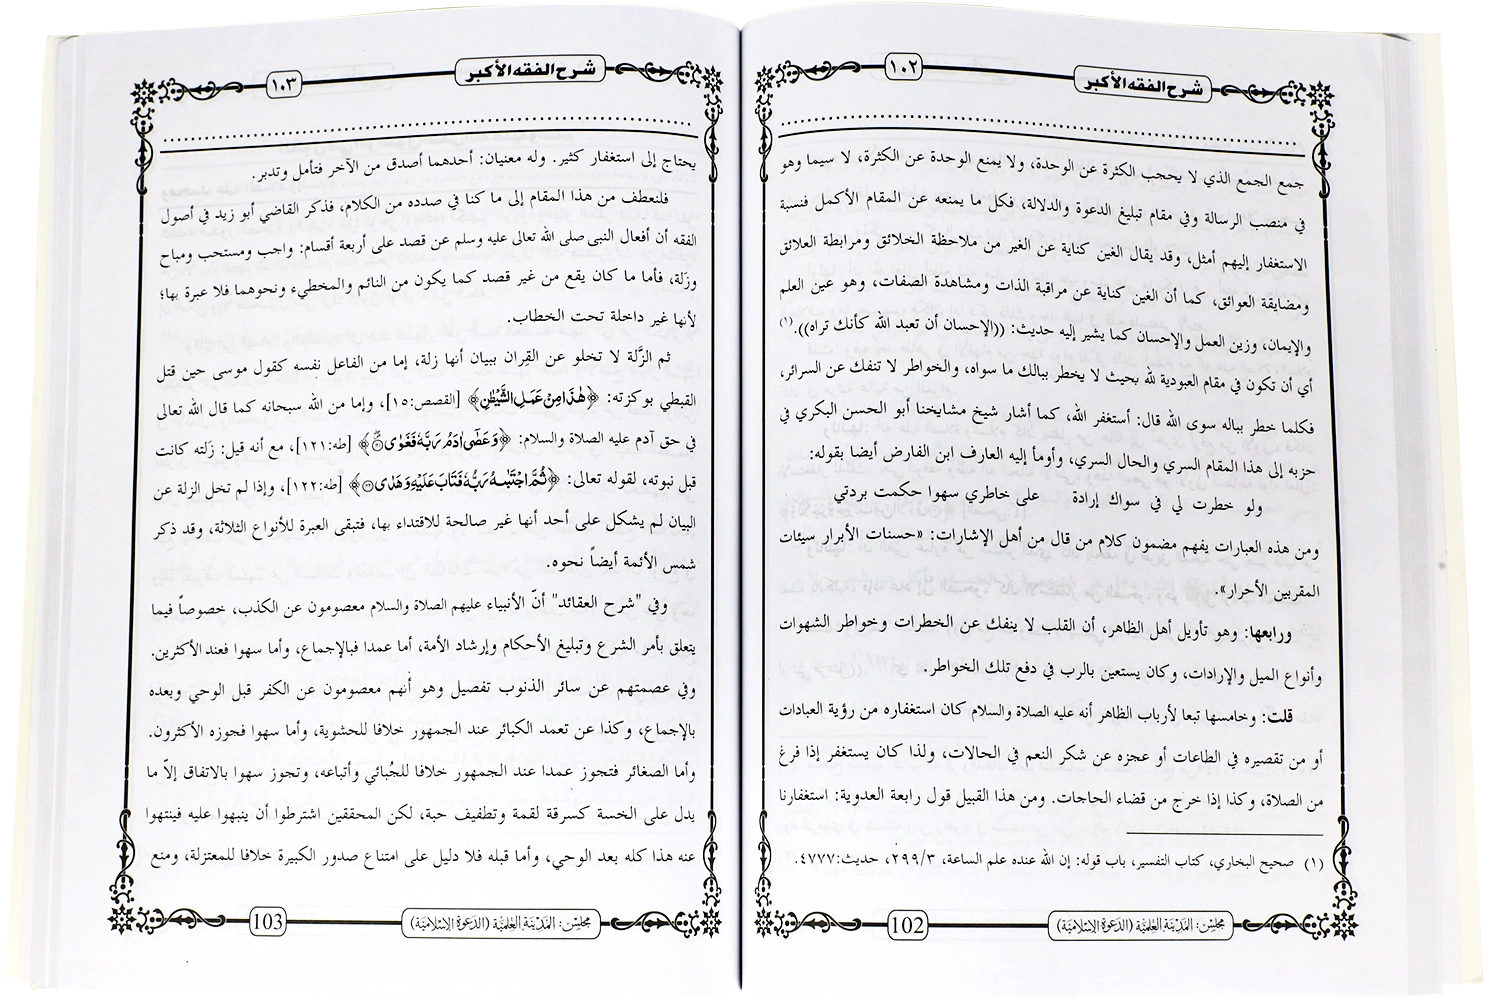 شرح الفقه الأكبر
١٠٢
جمع الجمع الذي لا يحجب الكثرة عن الوحدة، ولا يمنع الوحدة عن الكثرة، لا سيما وهو
في منصب الرسالة وفي مقام تبليغ الدعوة والدلالة، فكل ما يمنعه عن المقام الأكمل فنسبة
الاستغفار إليهم أمثل، وقد يقال الغين كناية عن الغير من ملاحظة الخلائق ومرابطة العلائق
ومضايقة العوائق، كما أن الغين كناية عن مراقبة الذات ومشاهدة الصفات، وهو عين العلم
والإيمان، وزين العمل والإحسان كما يشير إليه حديث: ((الإحسان أن تعبد الله كأنك تراه)).(١)
أي أن تكون في مقام العبودية لله بحيث لا يخطر ببالك ما سواه، والخواطر لا تنفك عن السرائر،
فكلما خطر بباله سوى الله قال: أستغفر الله، كما أشار شيخ مشايخنا أبو الحسن البكري في
حزبه إلى هذا المقام السري والحال السري، وأومأ إليه العارف ابن الفارض أيضا بقوله:
ولو خطرت لي في سواك إرادة على خاطري سهوا حكمت بردتي
ومن هذه العبارات يفهم مضمون كلام من قال من أهل الإشارات: «حسنات الأبرار سيئات
المقربين الأحرار».
ورابعها: وهو تأويل أهل الظاهر، أن القلب لا ينفك عن الخطرات وخواطر الشهوات
وأنواع الميل والإرادات، وكان يستعين بالرب في دفع تلك الخواطر.
قلت: وخامسها تبعا لأرباب الظاهر أنه عليه الصلاة والسلام كان استغفاره من رؤية العبادات
أو من تقصيره في الطاعات أو عجزه عن شكر النعم في الحالات، ولذا كان يستغفر إذا فرغ
من الصلاة، وكذا إذا خرج من قضاء الحاجات. ومن هذا القبيل قول رابعة العدوية: استغفارنا
(١) صحيح البخاري، كتاب التفسير، باب قوله: إن الله عنده علم الساعة، ٢٩٩/٣، حديث:٤٧٧٧.
مجلس: المدينة العلمية (الدعوة الإسلامية)
102
شرح الفقه الأكبر
١٠٣
يحتاج إلى استغفار كثير. وله معنيان: أحدهما أصدق من الآخر فتأمل وتدبر.
فلنعطف من هذا المقام إلى ما كنا في صدده من الكلام، فذكر القاضي أبو زيد في أصول
الفقه أن أفعال النبي صلى الله تعالى عليه وسلم عن قصد على أربعة أقسام: واجب ومستحب ومباح
وزلة، فأما ما كان يقع من غير قصد كما يكون من النائم والمخطيء ونحوهما فلا عبرة بها؛
لأنها غير داخلة تحت الخطاب.
ثم الزَّلة لا تخلو عن القِران ببيان أنها زلة، إما من الفاعل نفسه كقول موسى حين قتل
القبطي بوكزته: ﴿هٰذَا مِنْ عَمَلِ الشَّيْطٰنِ﴾ [القصص:١٥]، وإما من الله سبحانه كما قال الله تعالى
في حق آدم عليه الصلاة والسلام: ﴿وَعَصٰۤى اٰدَمُ رَبَّهٗ فَغَوٰى﴾ [طه:١٢١]، مع أنه قيل: زلته كانت
قبل نبوته، لقوله تعالى: ﴿ثُمَّ اجْتَبٰىهُ رَبُّهٗ فَتَابَ عَلَيْهِ وَهَدٰى﴾ [طه:١٢٢]، وإذا لم تخل الزلة عن
البيان لم يشكل على أحد أنها غير صالحة للاقتداء بها، فتبقى العبرة للأنواع الثلاثة، وقد ذكر
شمس الأئمة أيضاً نحوه.
وفي "شرح العقائد" أنّ الأنبياء عليهم الصلاة والسلام معصومون عن الكذب، خصوصاً فيما
يتعلق بأمر الشرع وتبليغ الأحكام وإرشاد الأمة، أما عمدا فبالإجماع، وأما سهوا فعند الأكثرين.
وفي عصمتهم عن سائر الذنوب تفصيل وهو أنهم معصومون عن الكفر قبل الوحي وبعده
بالإجماع، وكذا عن تعمد الكبائر عند الجمهور خلافا للحشوية، وأما سهوا فجوزه الأكثرون.
وأما الصغائر فتجوز عمدا عند الجمهور خلافا للجُبائي وأتباعه، وتجوز سهوا بالاتفاق إلاّ ما
يدل على الخسة كسرقة لقمة وتطفيف حبة، لكن المحققين اشترطوا أن ينبهوا عليه فينتهوا
عنه هذا كله بعد الوحي، وأما قبله فلا دليل على امتناع صدور الكبيرة خلافا للمعتزلة، ومنع
مجلس: المدينة العلمية (الدعوة الإسلامية)
103